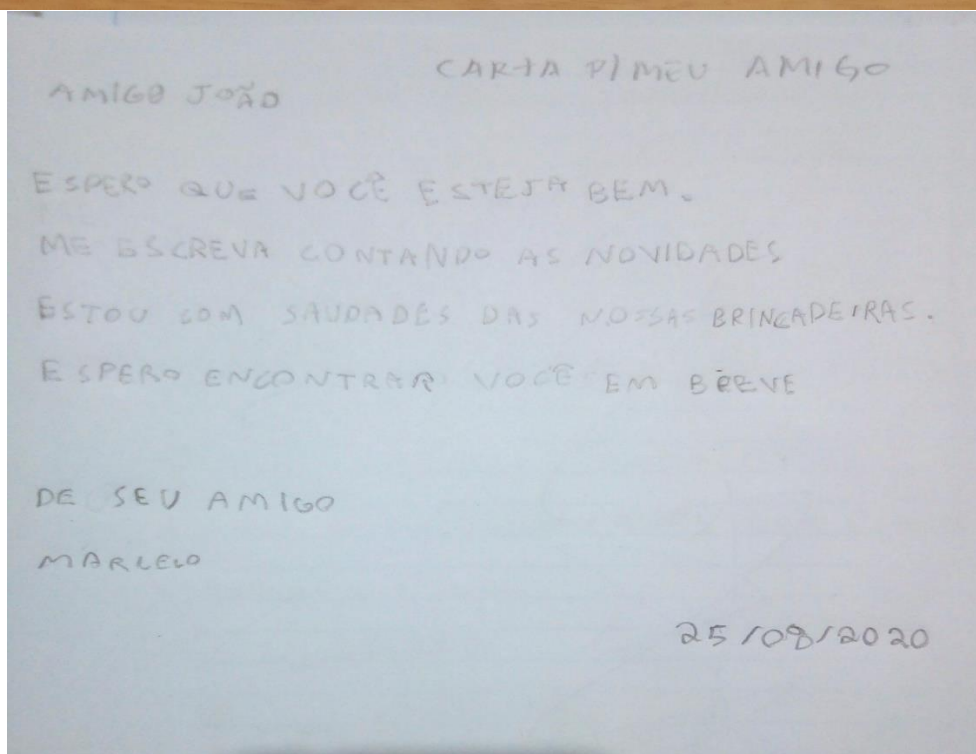 CARTA P/ MEU AMIGO
AMIGO JOÃO
ESPERO QUE VOCÊ ESTEJA BEM.
ME ESCREVA CONTANDO AS NOVIDADES
ESTOU COM SAUDADES DAS NOSSAS BRINCADEIRAS.
ESPERO ENCONTRAR VOCÊ EM BREVE
DE SEU AMIGO
MARCELO
25/08/2020